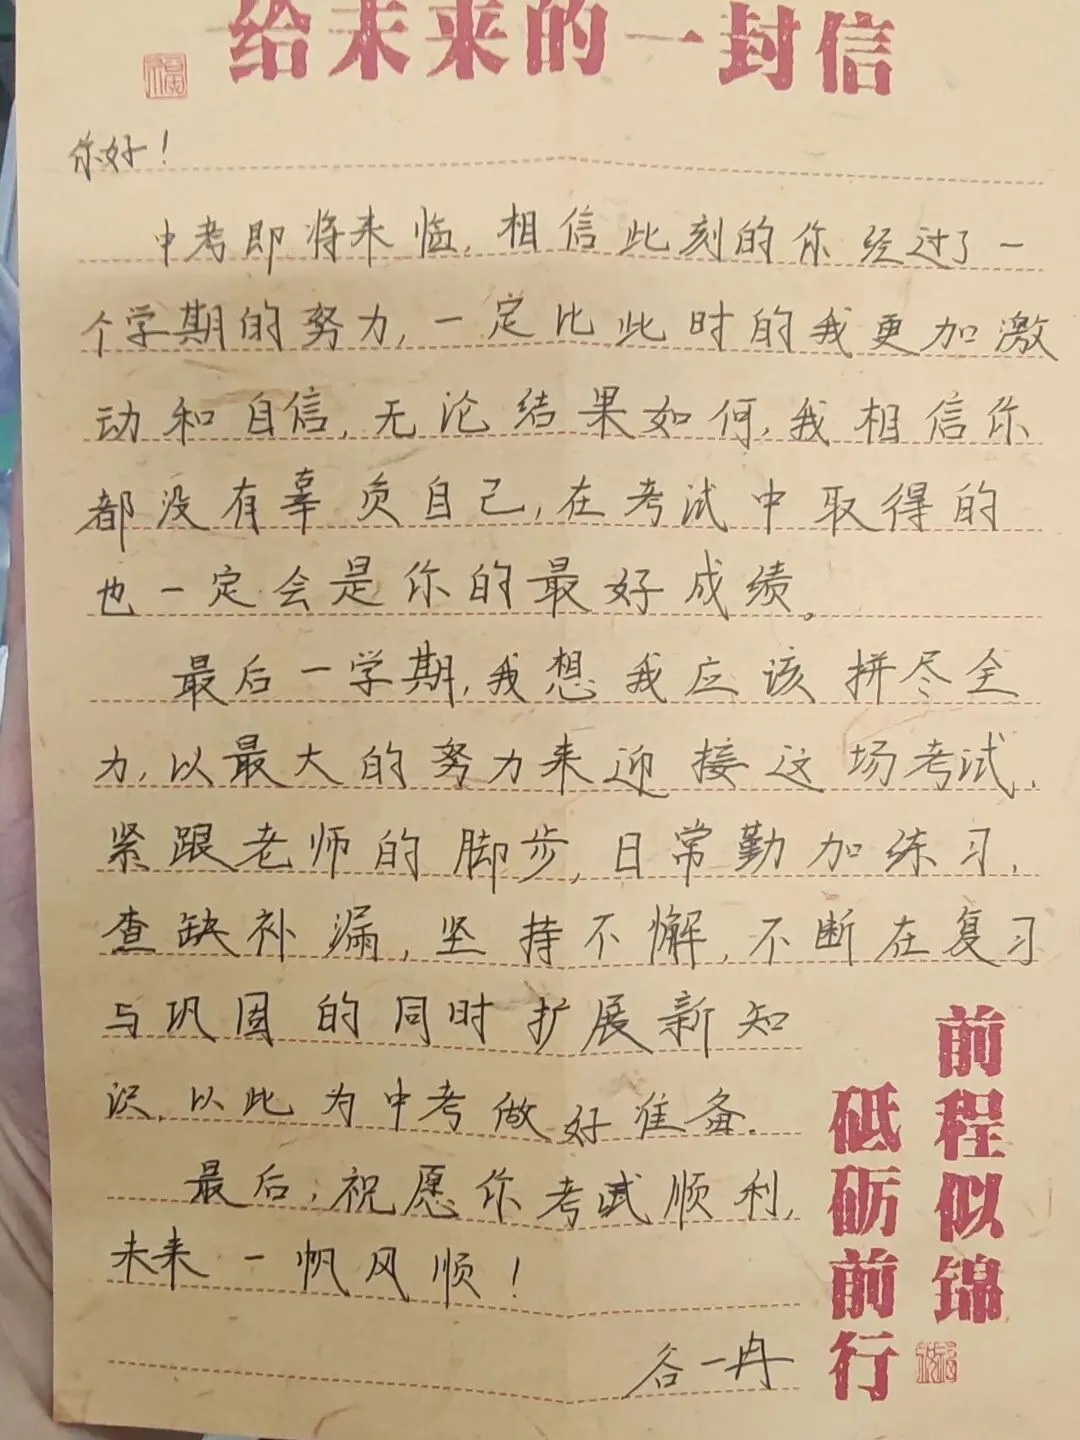 给未来的一封信
你好！
中考即将来临，相信此刻的你经过了一
个学期的努力，一定比此时的我更加激
动和自信，无论结果如何，我相信你
都没有辜负自己，在考试中取得的
也一定会是你的最好成绩。
最后一学期，我想我应该拼尽全
力，以最大的努力来迎接这场考试，
紧跟老师的脚步，日常勤加练习，
查缺补漏，坚持不懈，不断在复习
与巩固的同时扩展新知
识，以此为中考做好准备。
最后，祝愿你考试顺利，
未来一帆风顺！
谷一冉
前程似锦
砥砺前行